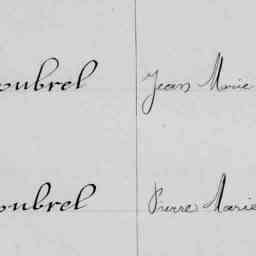 oubrel Jean Marie
oubrel Pierre Marie